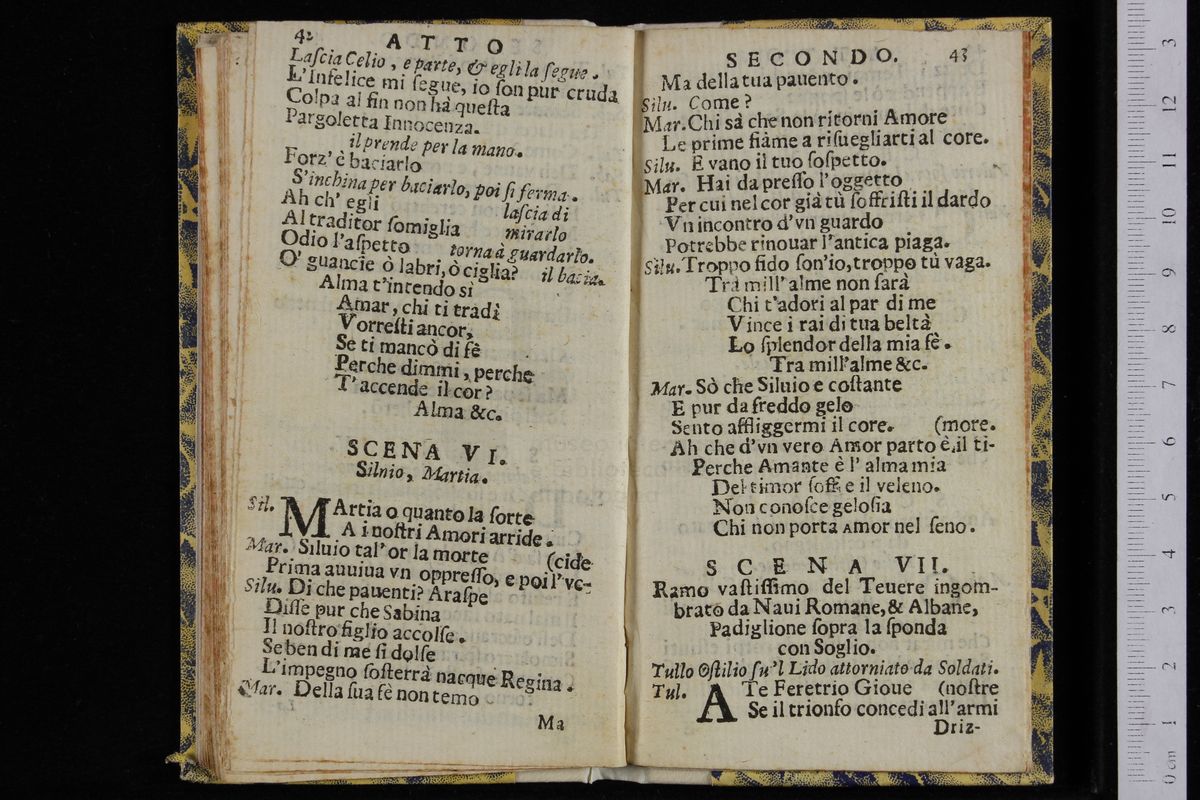 42
ATTO
Laſcia Celio, e parte, & egli la ſegue.
L'Infelice mi ſegue, io ſon pur cruda
Colpa al fin non hà queſta
Pargoletta Innocenza.
il prende per la mano.
Forz' è baciarlo
S'inchina per baciarlo, poi ſi ferma.
Ah ch' egli laſcia di
Al traditor ſomiglia mirarlo
Odio l'aſpetto torna à guardarlo.
O' guancie ò labri, ò ciglia? il bacia.
Alma t'intendo sì
Amar, chi ti tradì
Vorreſti ancor,
Se ti mancò di fè
Perche dimmi, perche
T'accende il cor?
Alma &c.
SCENA VI.
Silnio, Martia.
Sil. MArtia o quanto la ſorte
A i noſtri Amori arride.
Mar. Siluio tal' or la morte (cide
Prima auuiua vn oppreſſo, e poi l' vc-
Silu. Di che pauenti? Araſpe
Diſſe pur che Sabina
Il noſtro figlio accolſe.
Se ben di me ſi dolſe
L'impegno ſoſterrà nacque Regina.
Mar. Della ſua fè non temo
Ma
SECONDO. 43
Ma della tua pauento.
Silu. Come?
Mar. Chi sà che non ritorni Amore
Le prime fiàme a riſuegliarti al core.
Silu. E vano il tuo ſoſpetto.
Mar. Hai da preſſo l'oggetto
Per cui nel cor già tù ſoffriſti il dardo
Vn incontro d'vn guardo
Potrebbe rinouar l'antica piaga.
Silu. Troppo fido ſon'io, troppo tù vaga.
Trà mill' alme non ſarà
Chi t'adori al par di me
Vince i rai di tua beltà
Lo ſplendor della mia fè.
Tra mill'alme &c.
Mar. Sò che Siluio e coſtante
E pur da freddo gelo
Sento affliggermi il core. (more.
Ah che d'vn vero Amor parto è, il ti-
Perche Amante è l' alma mia
Del timor ſoffre il veleno.
Non conoſce geloſia
Chi non porta Amor nel ſeno.
SCENA VII.
Ramo vaſtiſſimo del Teuere ingom-
brato da Naui Romane, & Albane,
Padiglione ſopra la ſponda
con Soglio.
Tullo Oſtilio ſu'l Lido attorniato da Soldati.
Tul. A Te Feretrio Gioue (noſtre
Se il trionfo concedi all' armi
Driz-
0 cm 1 2 3 4 5 6 7 8 9 10 11 12 3